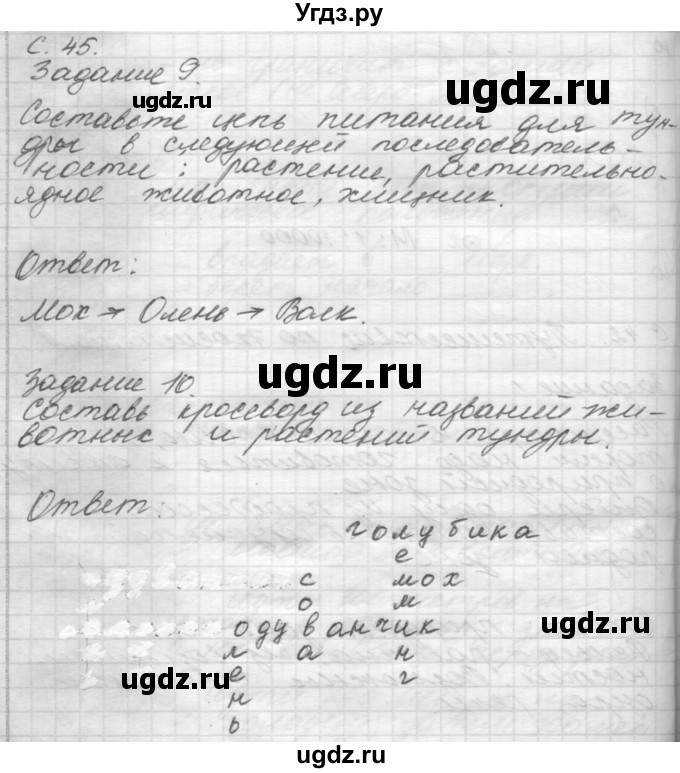 Угдз.ру
С. 45.
Задание 9.
ugdz.ru
ugdz.ru
Составьте цепь питания для тун-
дры в следующей последователь-
ности: растение, растительно-
ядное животное, хищник.
Ответ:
Мох → Олень → Волк.
ugdz.ru
Задание 10.
Составь кроссворд из названий жи-
вотных и растений тундры.
Ответ:
голубика
е
с мох
ugdz.ru
о м
одуванчик
л а н
е г
ugdz.ru
н
ь
ugdz.ru